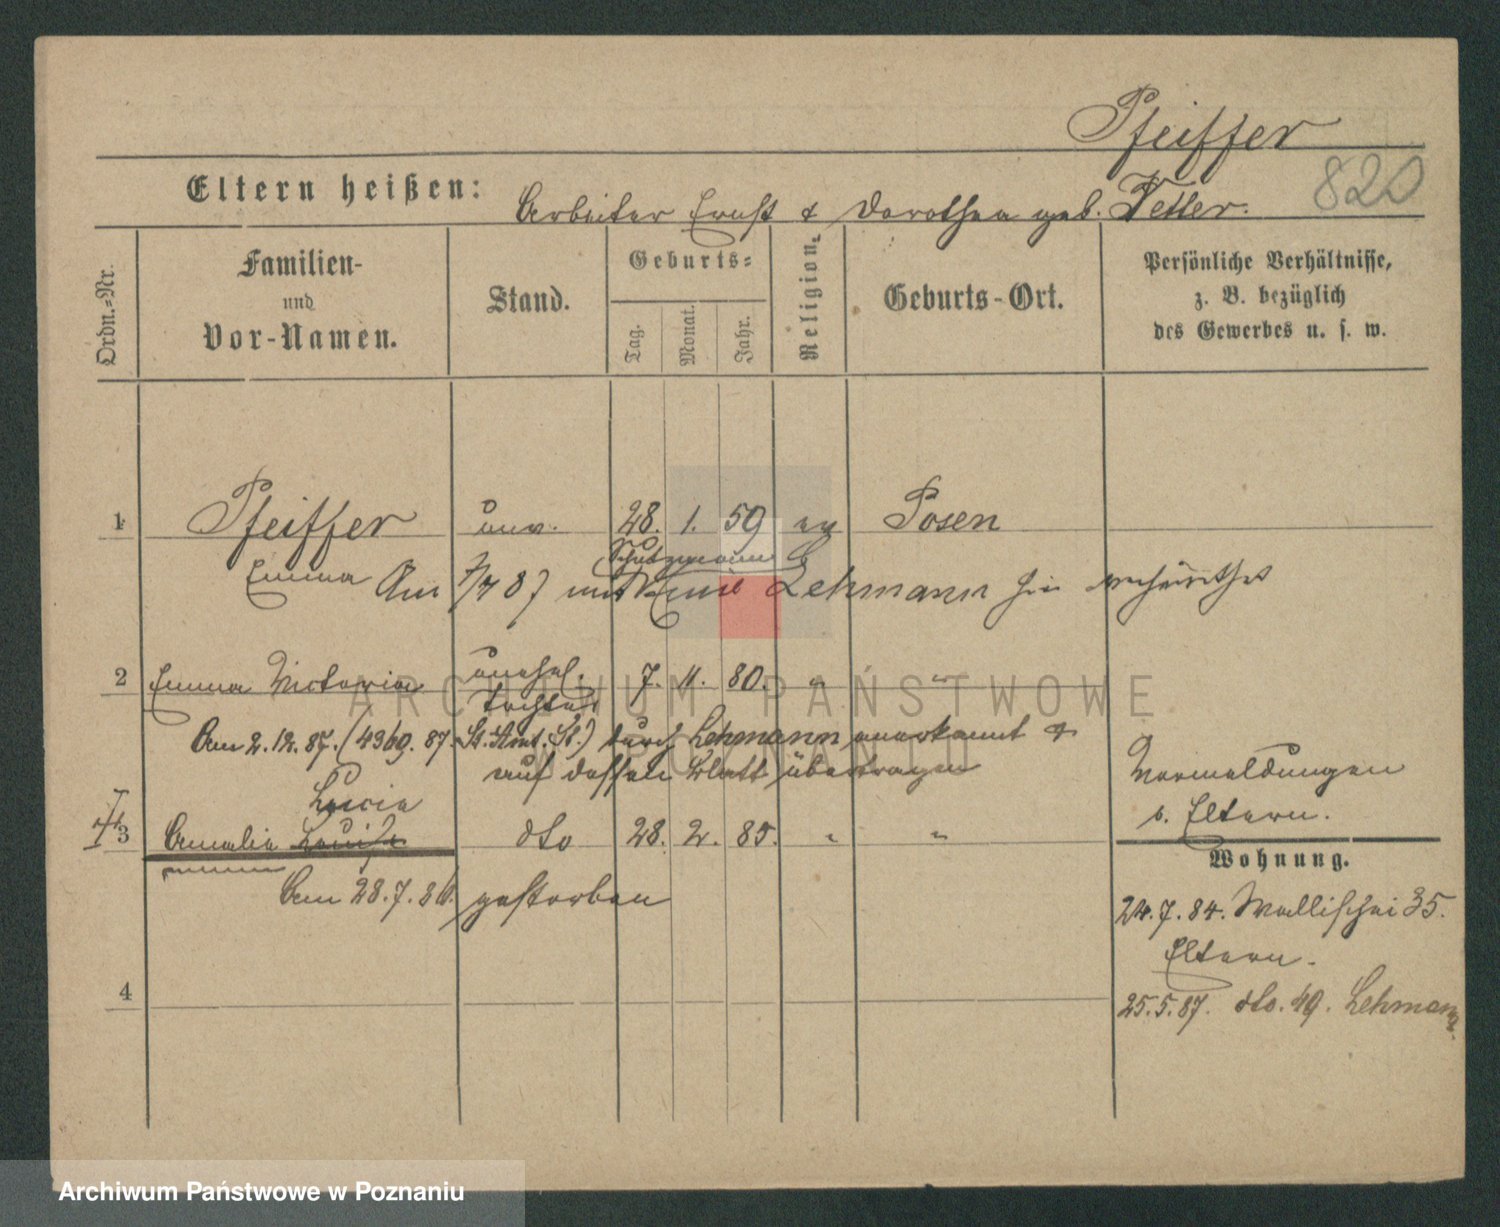 Pfeiffer
820
Eltern heißen: Arbeiter Ernst & Dorothea geb. Feller.
Ordn.-Nr.
Familien-
und
Vor-Namen.
Stand.
Geburts=
Tag.
Monat.
Jahr.
Religion.
Geburts-Ort.
Persönliche Verhältnisse,
z. B. bezüglich
des Gewerbes u. s. w.
1 Pfeiffer unv. 28. 1. 59 ev Posen
Schutzmann
Emma Am 7/7 87 mit Emil Lehmann hier verheirathet
2 Emma Victoria unehel. 7. 11. 80. " "
Tochter
Am 2.12.87. (4369.87 St. Amt. St.) durch Lehmann anerkannt &
auf dessen Blatt übertragen
Lucie
3 Amalie Louise dto 28. 2. 85. " "
Am 28.7.86. gestorben
4
Vormeldungen
s. Eltern.
Wohnung.
24.7.84. Wallischei 35.
Eltern.
25.5.87. dto. 49. Lehmann.
ARCHIWUM PAŃSTWOWE
W POZNANIU
Archiwum Państwowe w Poznaniu